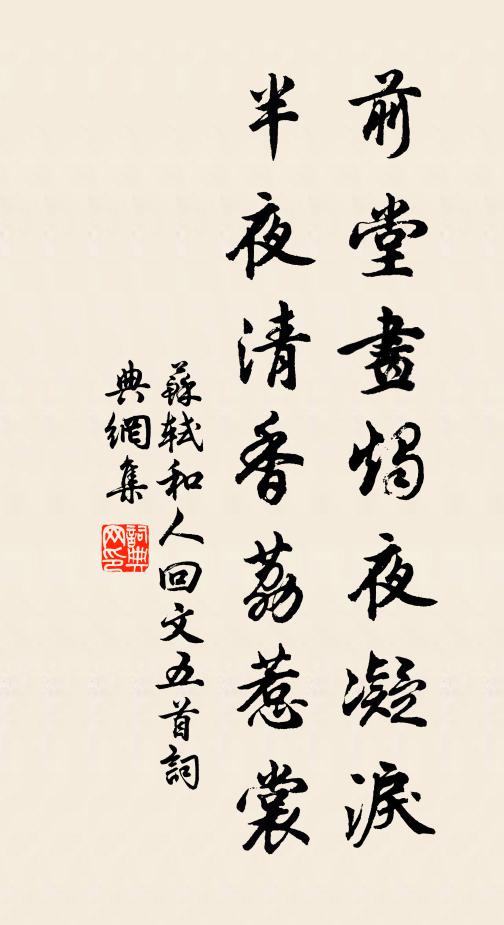 前堂畫燭夜凝淚
半夜清香荔惹裳
蘇軾和人回文五首詞
典網集
詞典
网印